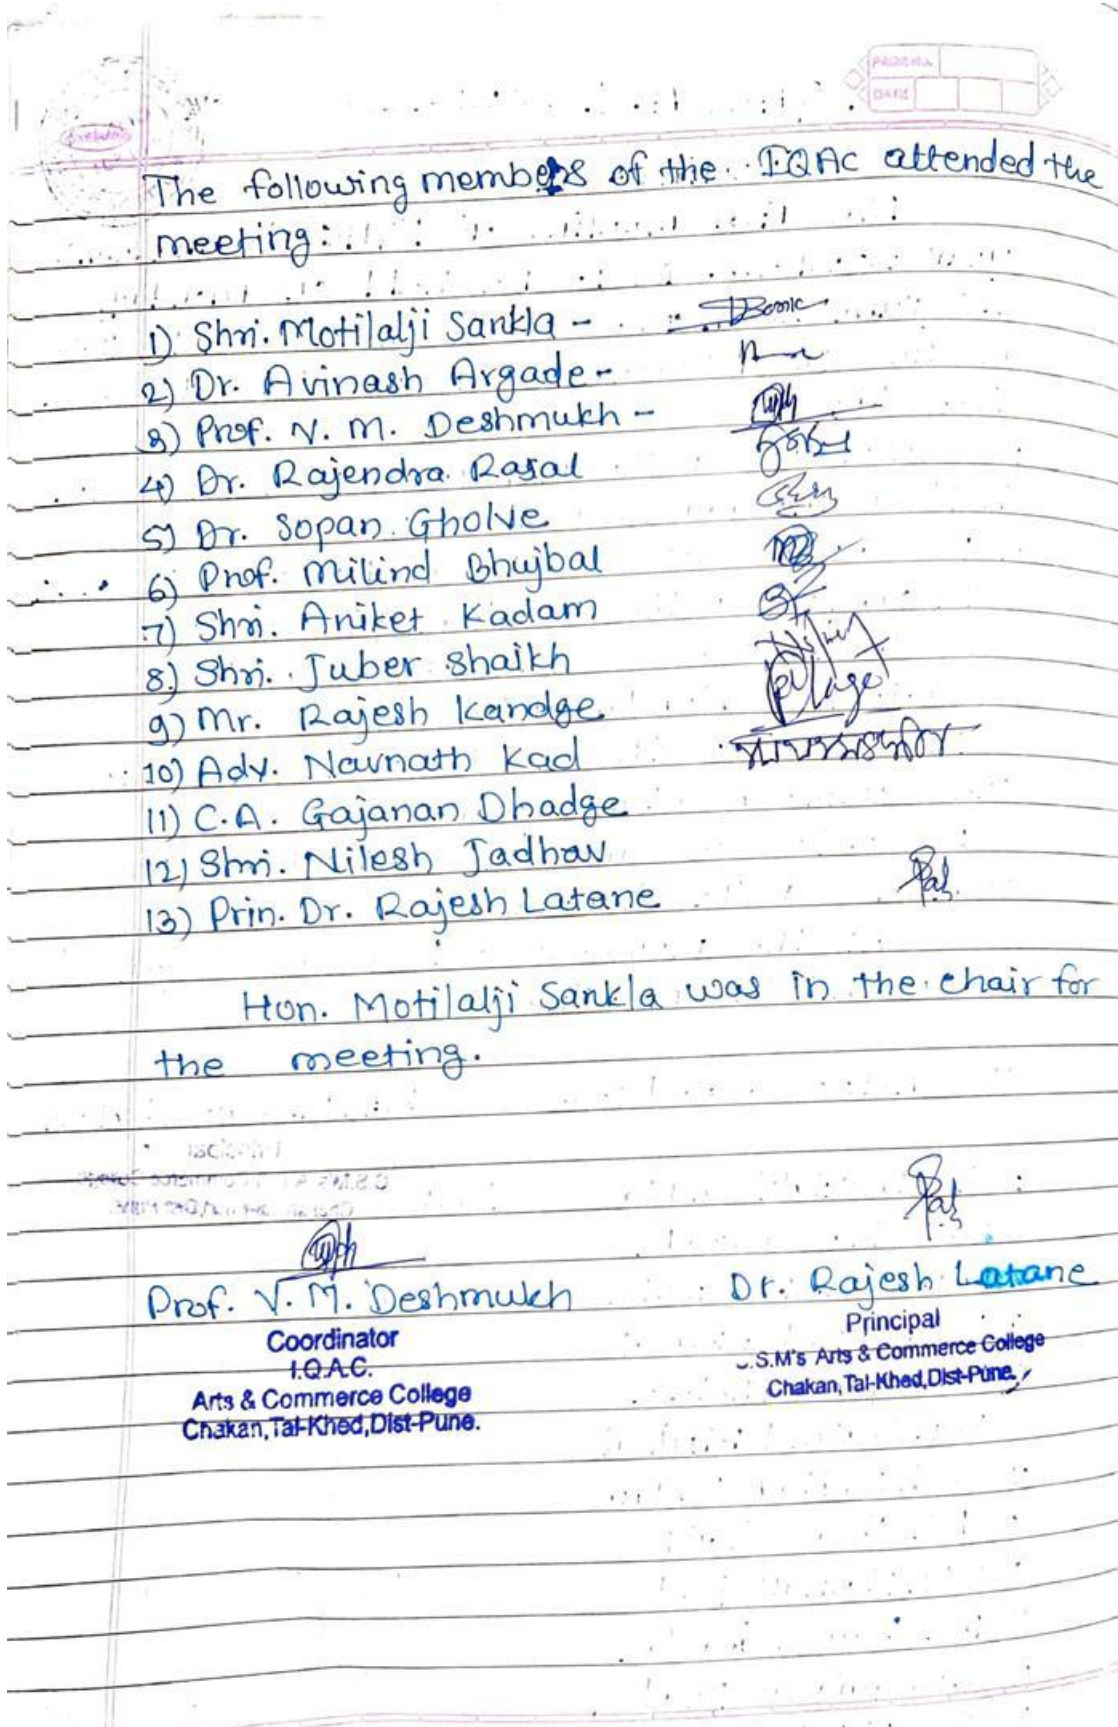 PAGE No.
DATE
The following members of the IQAC attended the
meeting:
1) Shri. Motilalji Sankla -
2) Dr. Avinash Argade -
3) Prof. V. M. Deshmukh -
4) Dr. Rajendra Rasal
5) Dr. Sopan Gholve
6) Prof. Milind Bhujbal
7) Shri. Aniket Kadam
8) Shri. Juber Shaikh
9) Mr. Rajesh Kandge
10) Adv. Navnath Kad
11) C.A. Gajanan Dhadge
12) Shri. Nilesh Jadhav
13) Prin. Dr. Rajesh Latane
Hon. Motilalji Sankla was in the chair for
the meeting.
Prof. V. M. Deshmukh
Coordinator
I.Q.A.C.
Arts & Commerce College
Chakan, Tal-Khed, Dist-Pune.
Dr. Rajesh Latane
Principal
.S.M's Arts & Commerce College
Chakan, Tal-Khed, Dist-Pune.